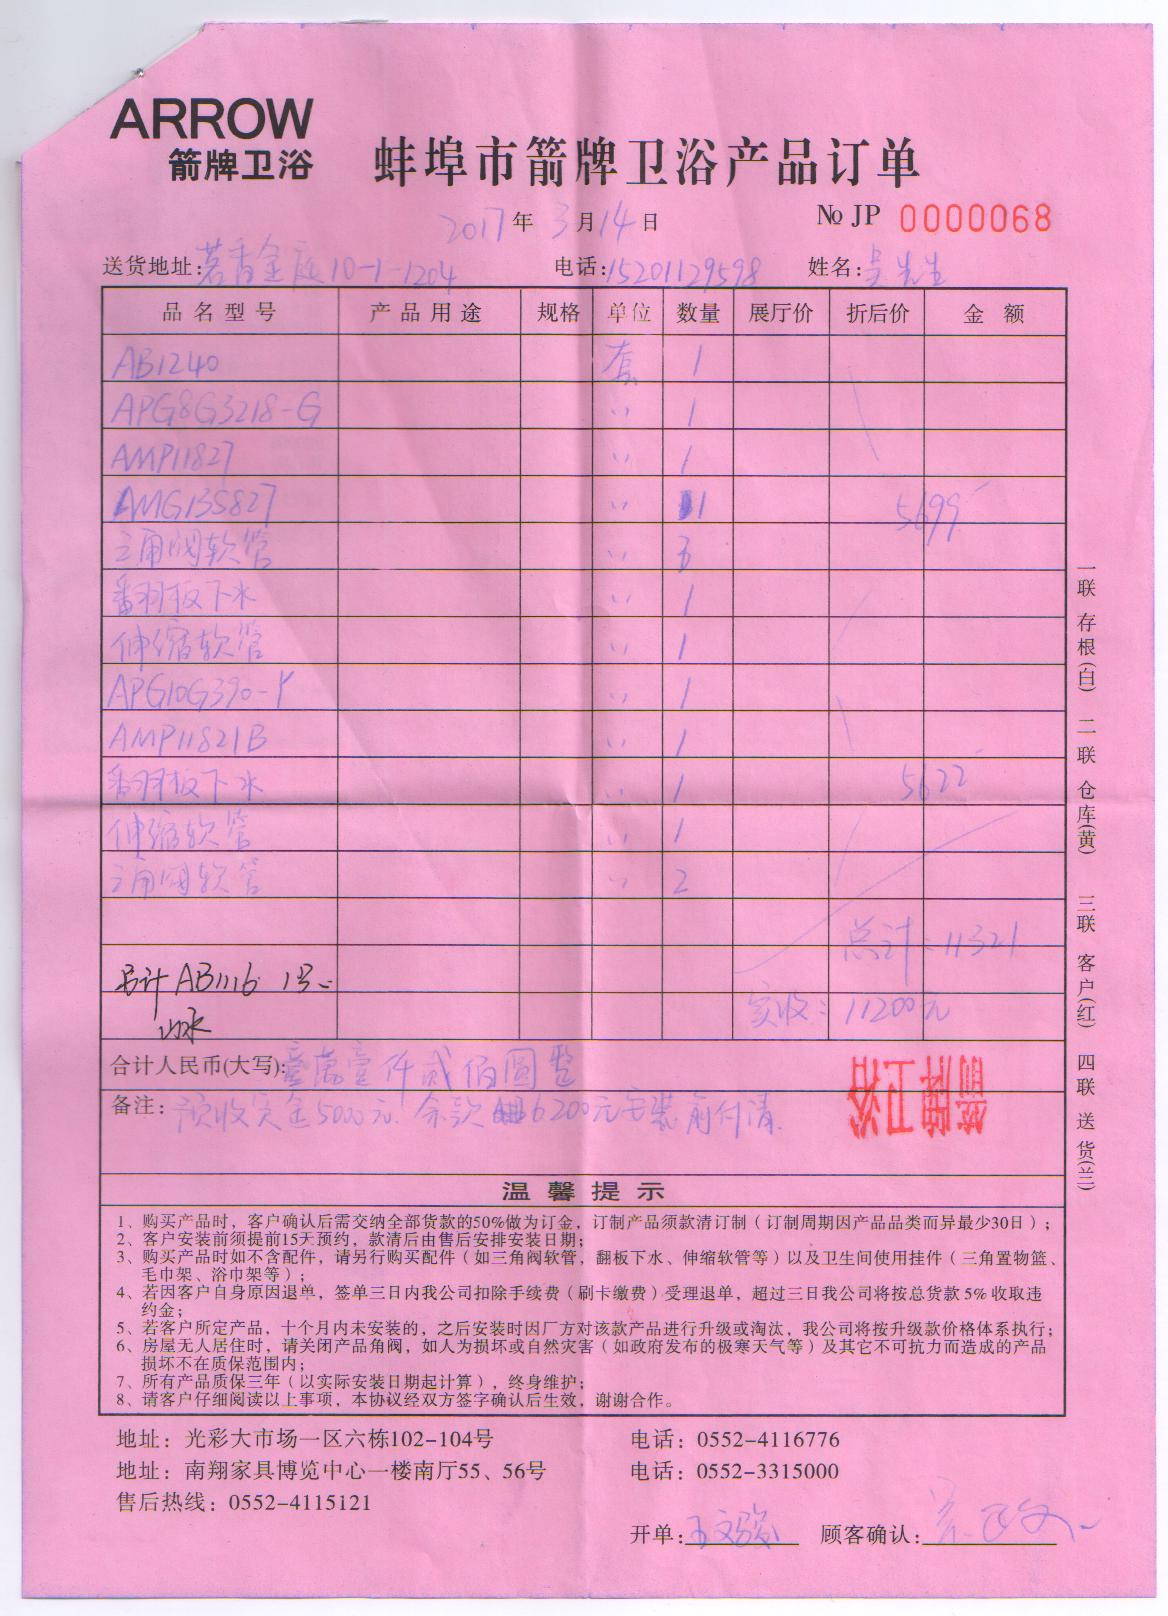 ARROW
箭牌卫浴
蚌埠市箭牌卫浴产品订单
2017年3月14日
№ JP 0000068
送货地址:茗香金庭10-1-1204 电话:15201129598 姓名:吴先生
品名型号 产品用途 规格 单位 数量 展厅价 折后价 金额
AB1240 套 1
APG8G3218-G 〃 1
AMP11827 〃 1
AMG13S827 〃 1 5699
三角阀软管 〃 3
番羽板下水 〃 1
伸缩软管 〃 1
APG10G390-Y 〃 1
AMP11821B 〃 1
番羽板下水 〃 1 5622
伸缩软管 〃 1
三角阀软管 〃 2
总计:11321
另计AB1116 1只
实收:11200元
合计人民币(大写):壹萬壹仟贰佰圆整
备注:预收定金5000元.余款6200元安装前付清.
箭牌卫浴
温馨提示
1、购买产品时，客户确认后需交纳全部货款的50%做为订金，订制产品须款清订制（订制周期因产品品类而异最少30日）;
2、客户安装前须提前15天预约，款清后由售后安排安装日期;
3、购买产品时如不含配件，请另行购买配件（如三角阀软管，翻板下水、伸缩软管等）以及卫生间使用挂件（三角置物篮、
毛巾架、浴巾架等）;
4、若因客户自身原因退单，签单三日内我公司扣除手续费（刷卡缴费）受理退单，超过三日我公司将按总货款5%收取违
约金;
5、若客户所定产品，十个月内未安装的，之后安装时因厂方对该款产品进行升级或淘汰，我公司将按升级款价格体系执行;
6、房屋无人居住时，请关闭产品角阀，如人为损坏或自然灾害（如政府发布的极寒天气等）及其它不可抗力而造成的产品
损坏不在质保范围内;
7、所有产品质保三年（以实际安装日期起计算），终身维护;
8、请客户仔细阅读以上事项，本协议经双方签字确认后生效，谢谢合作。
一联 存根(白) 二联 仓库(黄) 三联 客户(红) 四联 送货(兰)
地址：光彩大市场一区六栋102-104号 电话：0552-4116776
地址：南翔家具博览中心一楼南厅55、56号 电话：0552-3315000
售后热线：0552-4115121
开单:王文骏 顾客确认: